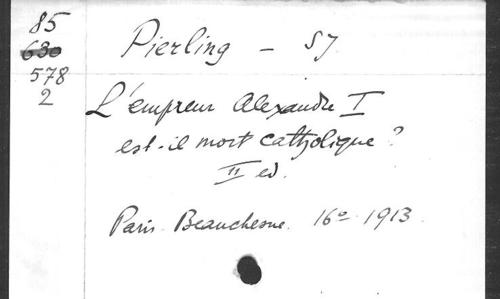 85
630
578
2
Pierling – SJ
L'empreur Alexandre I
est-il mort catholique?
II ed.
Paris. Beauchesne. 16º 1913.